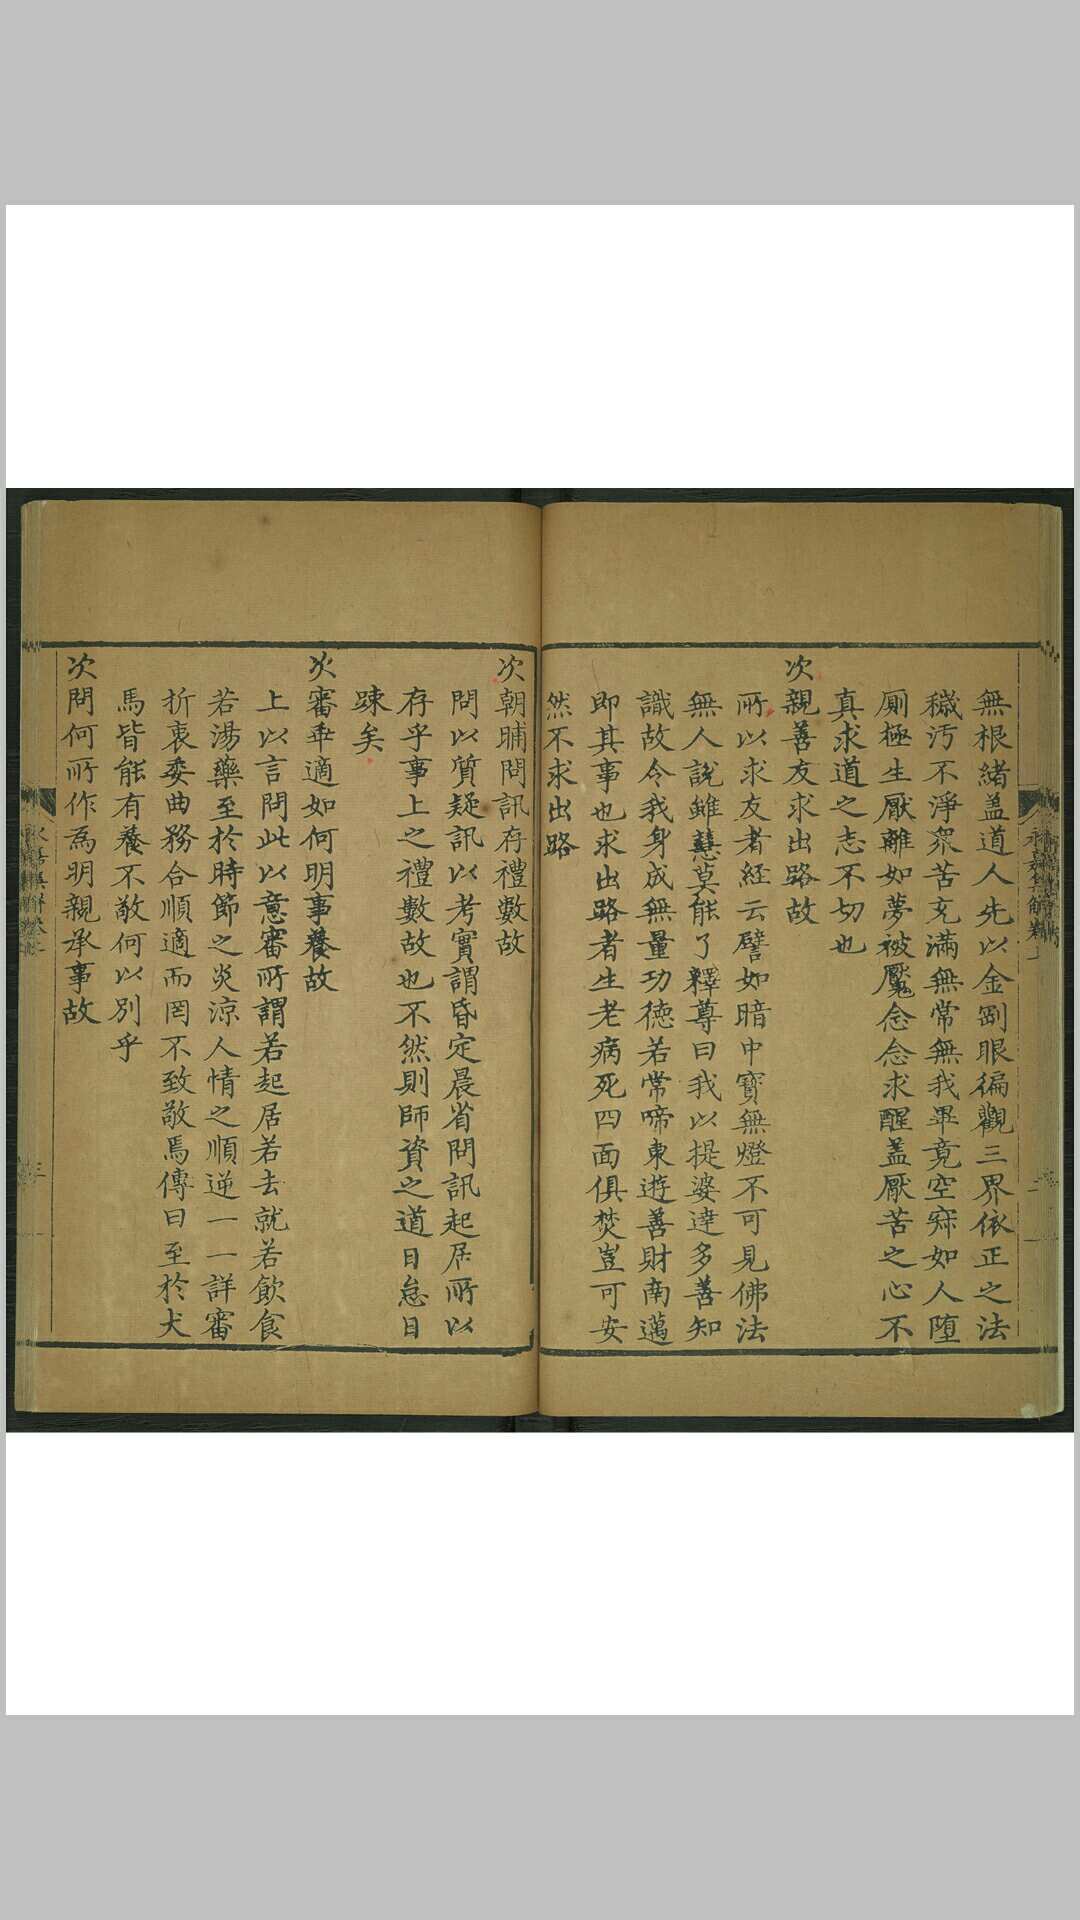 無根緒盖道人先以金剛眼徧觀三界依正之法
穢汚不淨衆苦充滿無常無我畢竟空寂如人墮
厠極生厭離如夢被魘念念求醒盖厭苦之心不
真求道之志不切也
次親善友求出路故
所以求友者經云譬如暗中寶無燈不可見佛法
無人說雖慧莫能了釋尊曰我以提婆達多善知
識故令我身成無量功德若常啼東遊善財南邁
即其事也求出路者生老病死四面俱焚豈可安
然不求出路
次朝晡問訊存禮數故
問以質疑訊以考實謂昏定晨省問訊起居所以
存乎事上之禮數故也不然則師資之道日怠日
踈矣
次審乖適如何明事養故
上以言問此以意審所謂若起居若去就若飲食
若湯藥至於時節之炎涼人情之順逆一一詳審
折衷委曲務合順適而罔不致敬焉傳曰至於犬
馬皆能有養不敬何以別乎
次問何所作為明親承事故